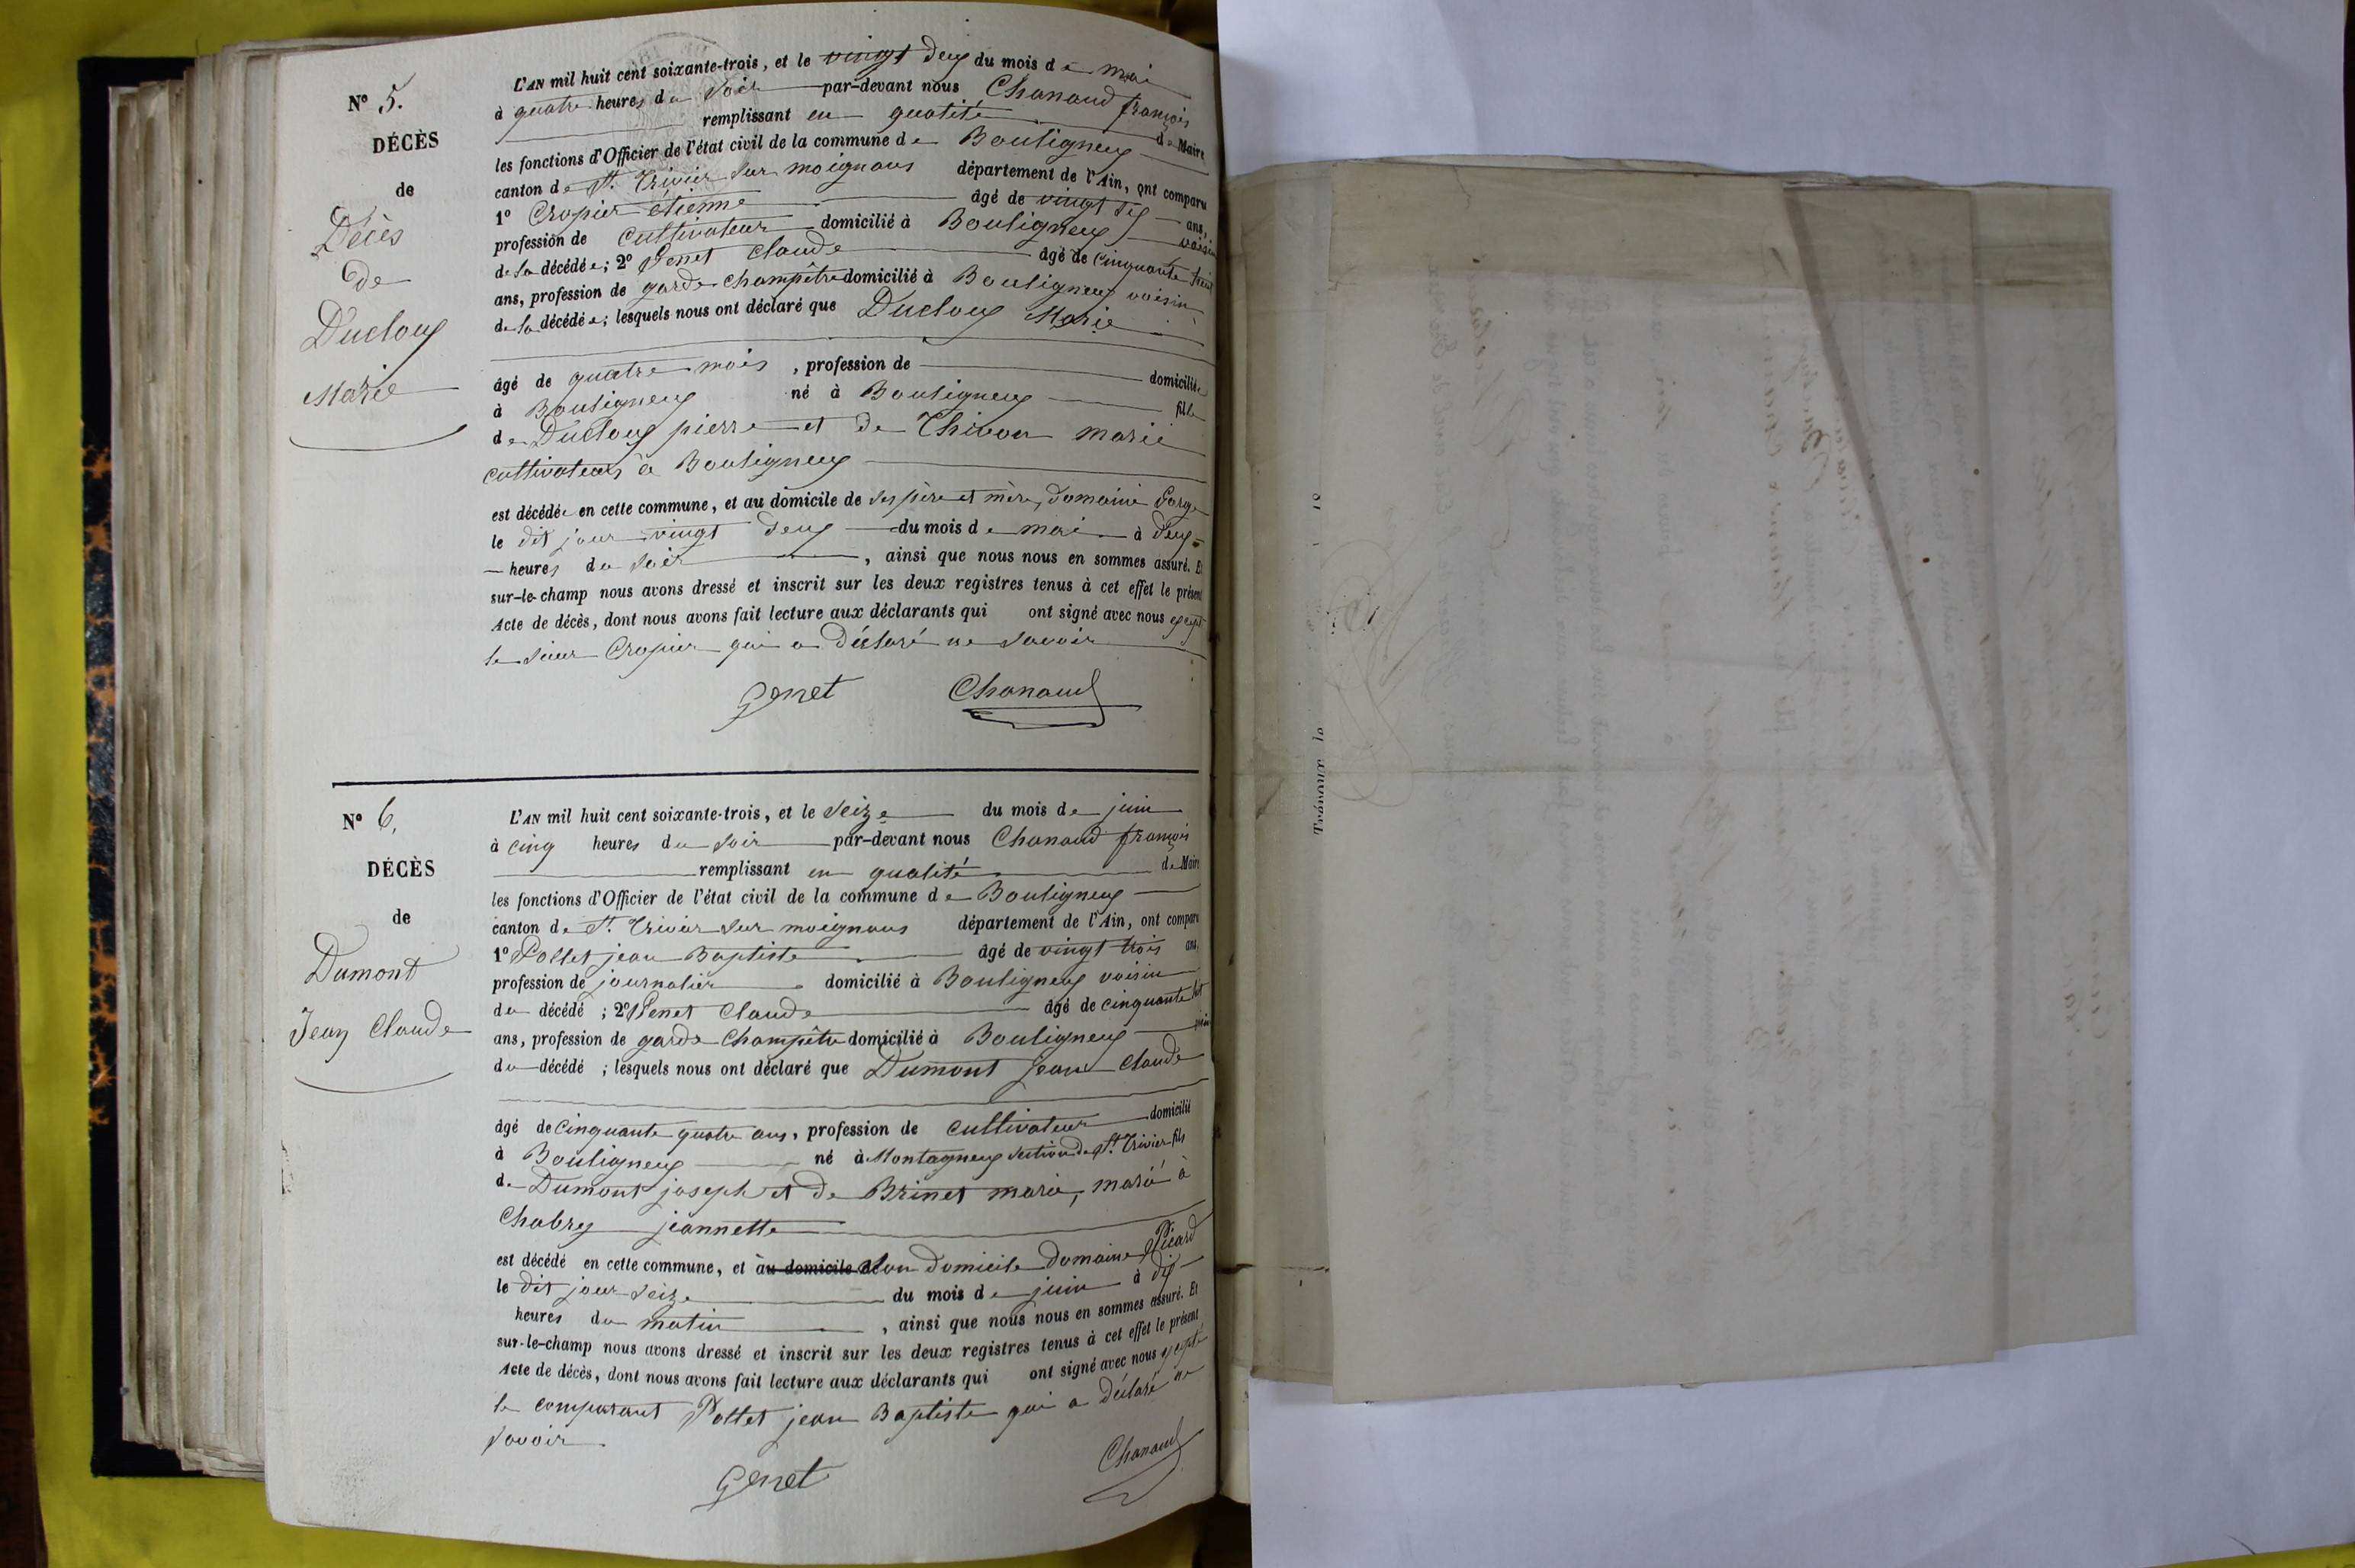 N° 5.
DÉCÈS
de
Décès
de
Ducloux
Marie
L'AN mil huit cent soixante-trois, et le vingt deux du mois de mai
à quatre heures du soir par-devant nous Chanaud françois
remplissant en qualité de Maire
les fonctions d'Officier de l'état civil de la commune de Bouligneux
canton de St. Trivier sur moignans département de l'Ain, ont comparu
1° Cropier étienne âgé de vingt six ans,
profession de cultivateur domicilié à Bouligneux voisin
de la décédée; 2° Genet Claude âgé de cinquante huit
ans, profession de garde champêtre domicilié à Bouligneux voisin
de la décédée; lesquels nous ont déclaré que Ducloux Marie
âgé de quatre mois, profession de domiciliée
à Bouligneux né à Bouligneux fille
de Ducloux pierre et de Thivon marie
cultivateurs à Bouligneux
est décédée en cette commune, et au domicile de ses père et mère, domaine
le dit jour vingt deux du mois de mai à deux
heures du soir, ainsi que nous nous en sommes assuré. Et
sur-le-champ nous avons dressé et inscrit sur les deux registres tenus à cet effet le présent
Acte de décès, dont nous avons fait lecture aux déclarants qui ont signé avec nous excepté
le sieur Cropier qui a déclaré ne savoir
Genet Chanaud
N° 6.
DÉCÈS
de
Dumont
Jean Claude
L'AN mil huit cent soixante-trois, et le seize du mois de juin
à cinq heures du soir par-devant nous Chanaud françois
remplissant en qualité de Maire
les fonctions d'Officier de l'état civil de la commune de Bouligneux
canton de St. Trivier sur moignans département de l'Ain, ont comparu
1° Pollet jean Baptiste âgé de vingt trois ans,
profession de journalier domicilié à Bouligneux voisin
du décédé; 2° Genet Claude âgé de cinquante huit
ans, profession de garde champêtre domicilié à Bouligneux voisin
du décédé; lesquels nous ont déclaré que Dumont Jean Claude
âgé de cinquante quatre ans, profession de cultivateur domicilié
à Bouligneux né à Montagneux section de St. Trivier fils
de Dumont joseph et de Brinet marie, marié à
Chabry jeannette
est décédé en cette commune, et au domicile de son domicile domaine Picard
le dit jour seize du mois de juin à dix
heures du matin, ainsi que nous nous en sommes assuré. Et
sur-le-champ nous avons dressé et inscrit sur les deux registres tenus à cet effet le présent
Acte de décès, dont nous avons fait lecture aux déclarants qui ont signé avec nous excepté
le comparant Pollet jean Baptiste qui a déclaré ne
savoir
Genet Chanaud